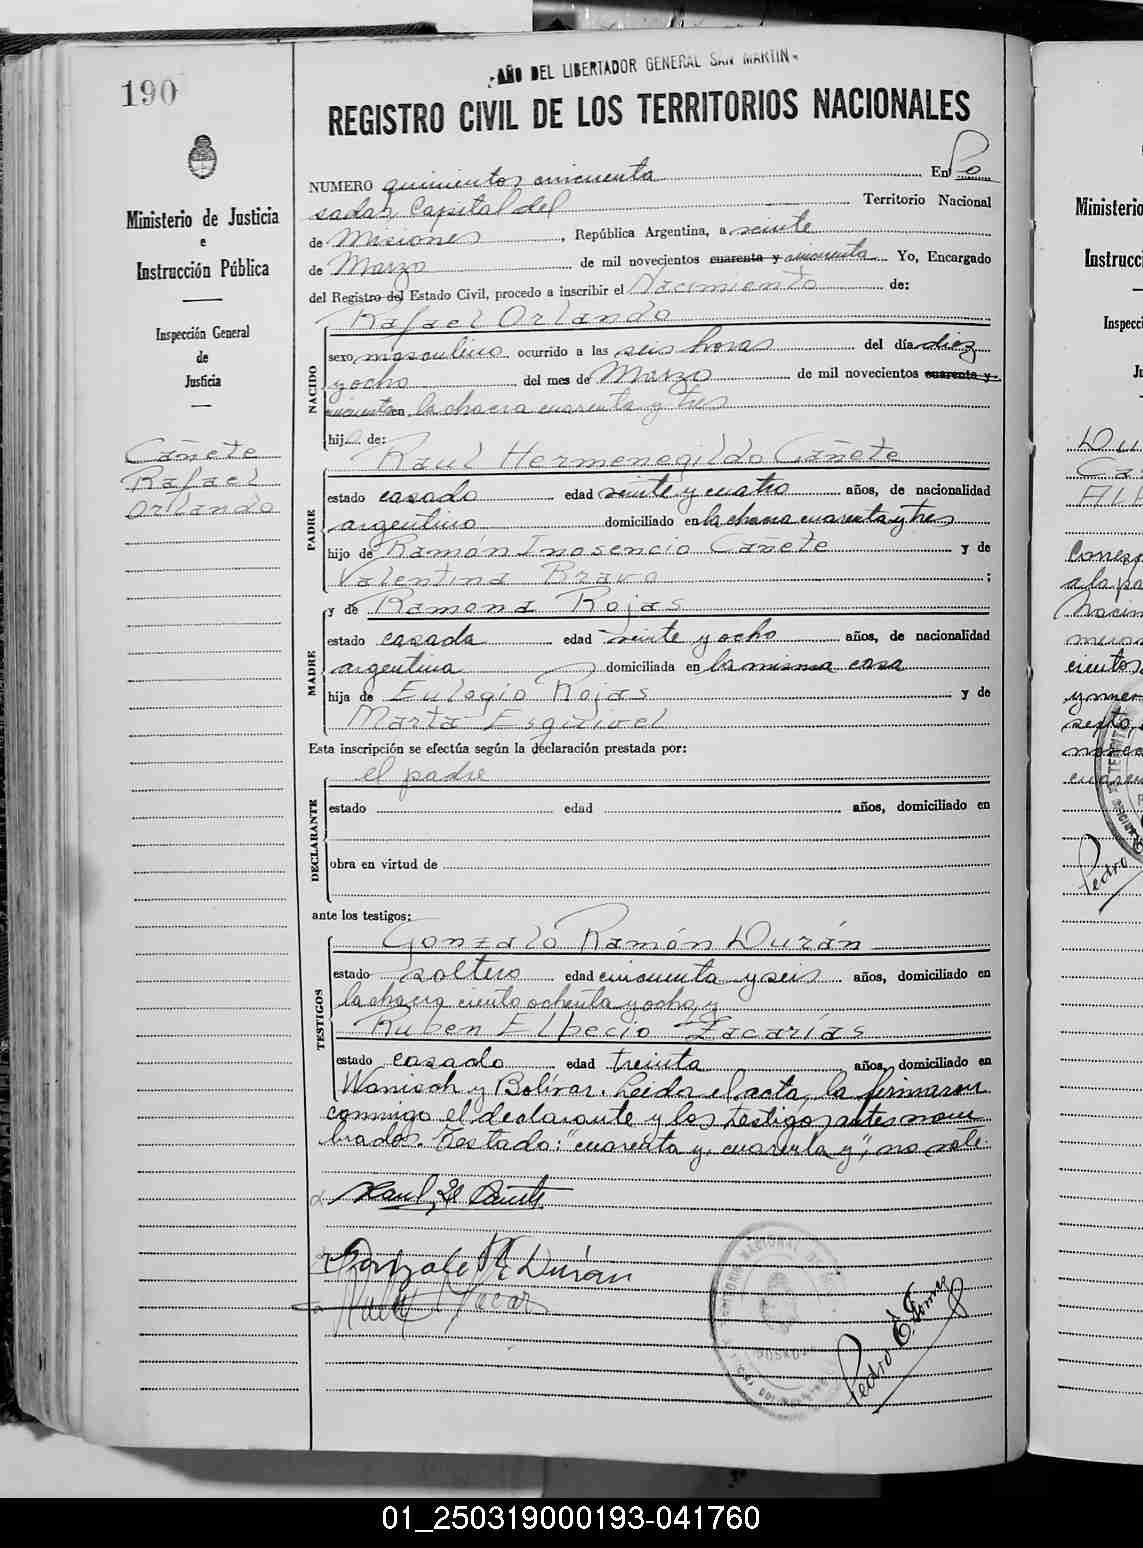 190
"AÑO DEL LIBERTADOR GENERAL SAN MARTIN"
REGISTRO CIVIL DE LOS TERRITORIOS NACIONALES
Ministerio de Justicia
e
Instrucción Pública
Inspección General
de
Justicia
Cañete
Rafael
Orlando
NUMERO quinientos cincuenta En Po
sadas, Capital del Territorio Nacional
de Misiones, República Argentina, a veinte
de Marzo de mil novecientos cuarenta y cincuenta Yo, Encargado
del Registro del Estado Civil, procedo a inscribir el Nacimiento de:
Rafael Orlando
NACIDO
sexo masculino ocurrido a las seis horas del día diez
y ocho del mes de Marzo de mil novecientos cuarenta y
cincuenta en la chacra cuarenta y tres
hijo de:
Raul Hermenegildo Cañete
PADRE
estado casado edad veinte y cuatro años, de nacionalidad
argentino domiciliado en la chacra cuarenta y tres
hijo de Ramón Inosencio Cañete y de
Valentina Bravo ;
y de Ramona Rojas
MADRE
estado casada edad veinte y ocho años, de nacionalidad
argentina domiciliada en la misma casa
hija de Eulogio Rojas y de
Marta Esquivel
Esta inscripción se efectúa según la declaración prestada por:
el padre
DECLARANTE
estado edad años, domiciliado en
obra en virtud de
ante los testigos:
Gonzalo Ramón Durán
TESTIGOS
estado soltero edad cincuenta y seis años, domiciliado en
la chacra ciento ochenta y ocho, y
Ruben Elpecio Zacarías
estado casado edad treinta años, domiciliado en
Wanisch y Bolívar. Leída el acta, la firmaron
conmigo el declarante y los testigos antes nom
brados. Testado: "cuarenta y, cuarenta y", no vale.
Raul H Cañete
Gonzalo R Durán
POSADAS
Pedro E. Gomez
Ministerio
Instrucc
Inspecci
Ju
01_250319000193-041760